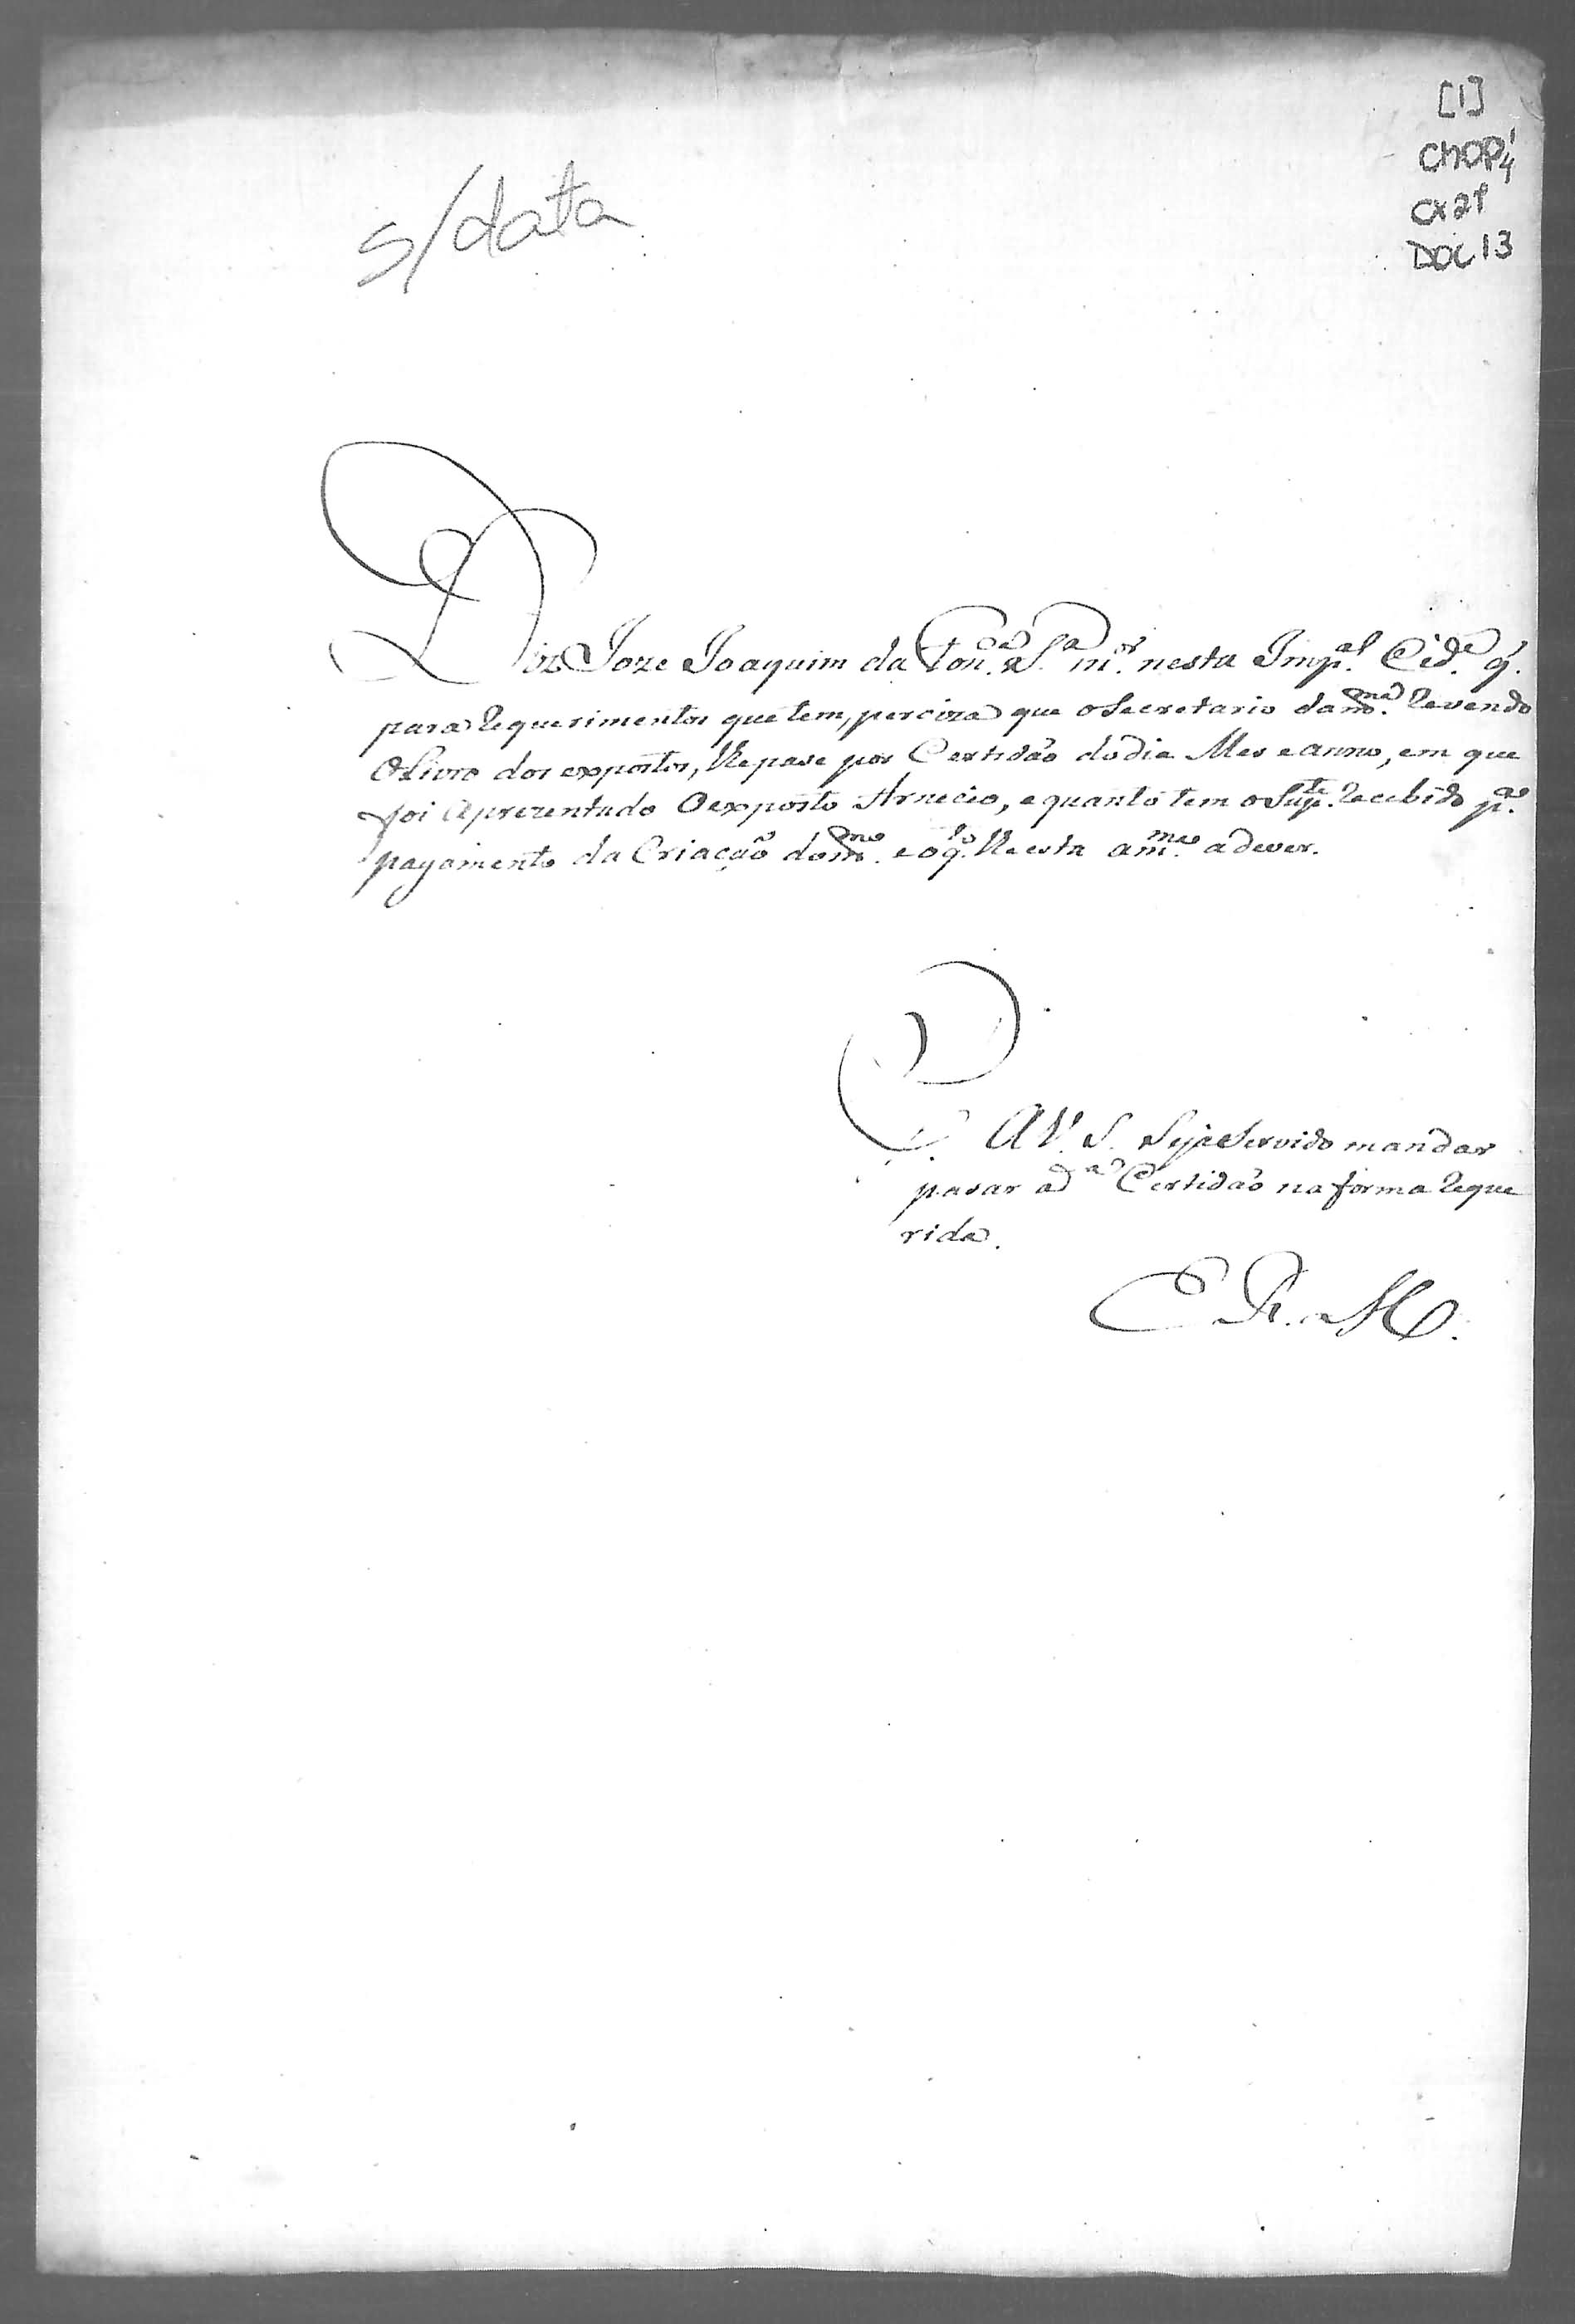 [1]
CX 21
DOC 13
s/data
Diz Joze Joaquim da m.or nesta Imp.al Cid.e q'
para requerimentos que tem, perciza que o Secretario da m.ma revendo
O Livro dos expostos, lhe pase por Certidão do dia Mes e anno, em que
foi aprezentado O exposto Arnecio, e quanto tem o Sup.te recebido p.a o
pagamento da Criação do m.mo e o q.to lhe esta a m.ma a dever.
P. A V. S. Seja Servido mandar
pasar a d.a Certidão na forma reque
rida.
E R. M.